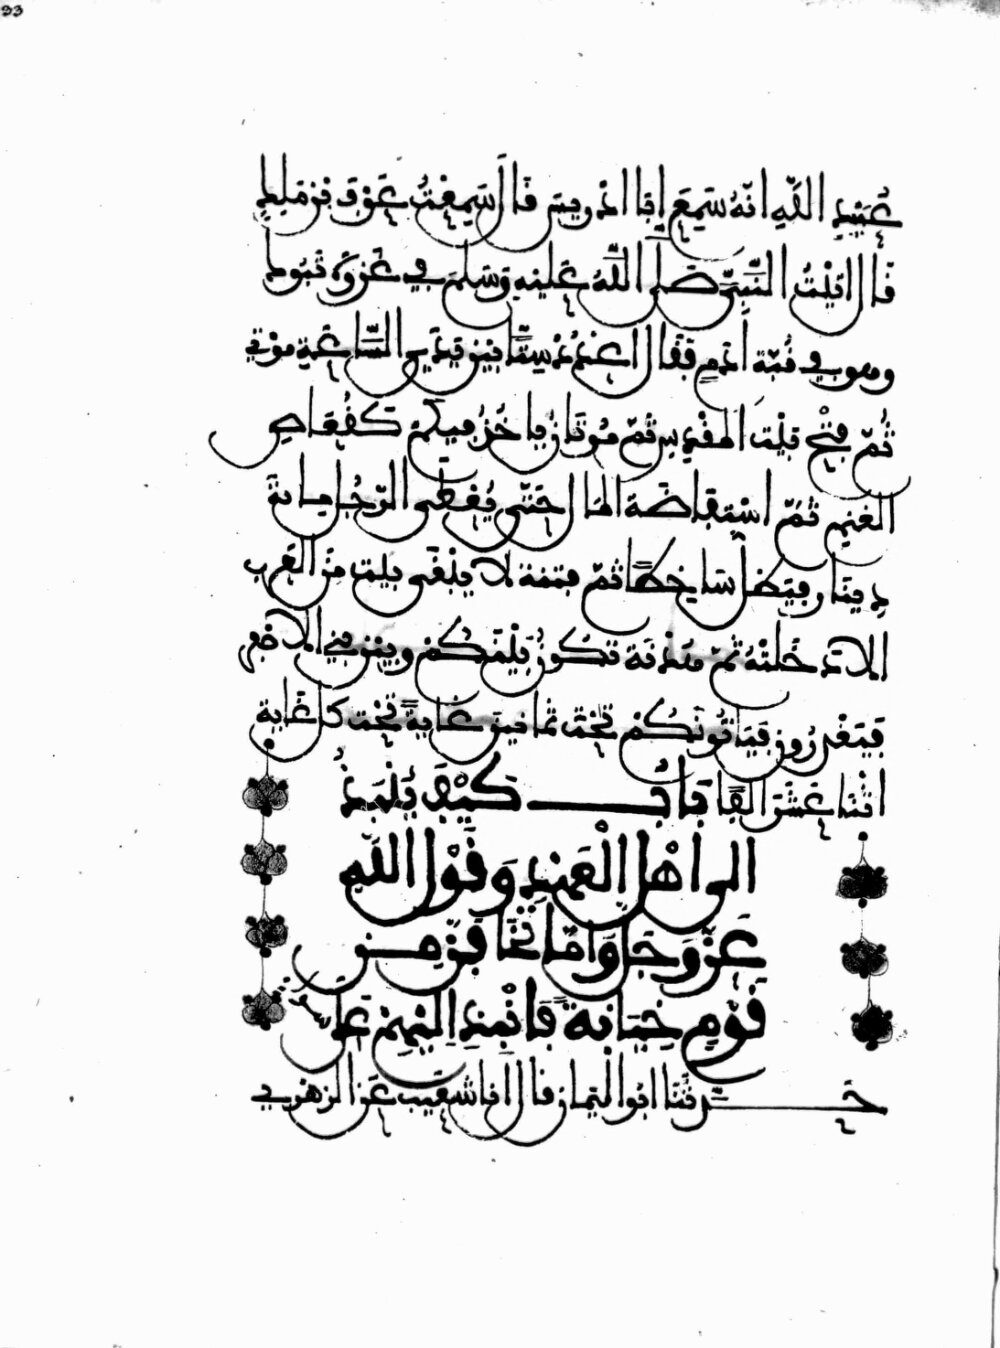 33
عُبَيْدِ اللَّهِ انَّهُ سَمِعَ ابَا ادْرِيسَ قَالَ سَمِعْتُ عَوْفَ بْنَ مَلِكٍ
قَالَ اتَيْتُ النَّبِيَّ صَلَى اللَّهُ عَلَيْهِ وَسَلَّمَ فِي غَزْوَةِ تَبُوكَ
وهو في قُبَّة أدَمٍ فَقَالَ اعْدُدْ سِتًّا بَيْنَ يَدَيِ السَّاعَةِ مَوْتِي
ثُمَّ فَتْحُ بَيْتِ المَقْدِسِ ثُمَّ مُوتَانٌ يَاخُذُ فِيكُمْ كَقُعَاصِ
الغَنَمِ ثُمَّ اسْتِفَاضَةُ المَالِ حَتَّى يُعْطَى الرَّجُلُ مِائةَ
دِينَارٍ فَيَظَلُّ سَاخِطًا ثُمَّ فِتْنَة لا يَبْقَى بَيْت مِنَ العَرَبِ
الا دَخَلَتْهُ ثُمَّ هُدْنَة تَكُونُ بَيْنَكُمْ وبَيْنَ بَنِي الاصْفَرِ
فَيَغْدِرُونَ فَيَاتُونَكُمْ تَحْتَ ثمَانِينَ غَايَةً تَحْتَ كل غَايَة
اثْنَا عَشَرَ الْفًا بَابُ كَيْفَ يُنْبَذُ
الى اهْلِ الْعَهْدِ وَقَوْلِ اللَّهِ
عَزَّ وَجَلَّ وَامَّا تَخَافَنَّ مِن
قَوْمٍ خِيَانَةً فَانْبِذِ الَيْهِمْ عَلَى سَوَاءٍ
حَدَّثَنَا ابُو اليَمَانِ قَالَ انَا شُعَيْب عَنِ الزهْرِي